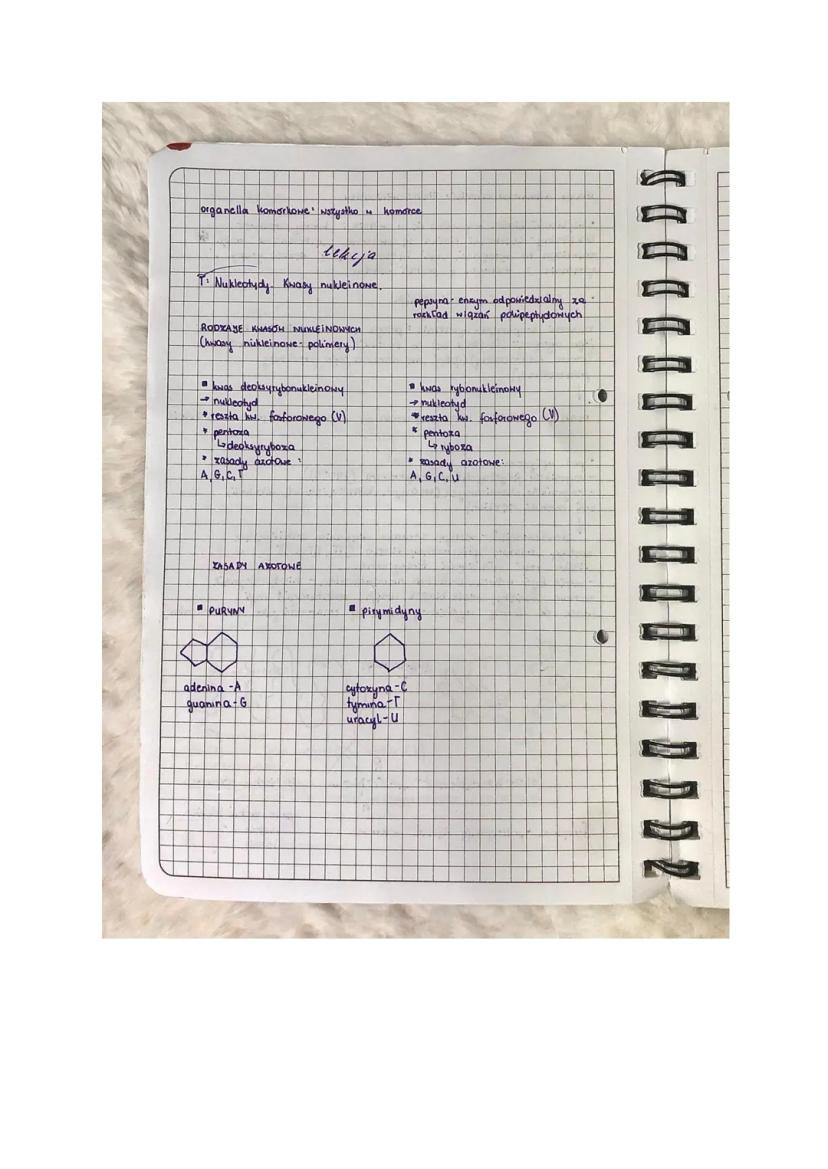 organella komórkowe: wszystko w komórce
lekcja
T: Nukleotydy. Kwasy nukleinowe.
pepsyna - enzym odpowiedzialny za
rozkład wiązań polipeptydowych
RODZAJE KWASÓW NUKLEINOWYCH
(kwasy nukleinowe - polimery)
▪ kwas deoksyrybonukleinowy
→ nukleotyd
* reszta kw. fosforowego (V)
* pentoza
↳ deoksyryboza
* zasady azotowe:
A, G, C, T
▪ kwas rybonukleinowy
→ nukleotyd
* reszta kw. fosforowego (V)
* pentoza
↳ ryboza
* zasady azotowe:
A, G, C, U
ZASADY AZOTOWE
▪ PURYNY
adenina - A
guanina - G
▪ pirymidyny
cytozyna - C
tymina - T
uracyl - U